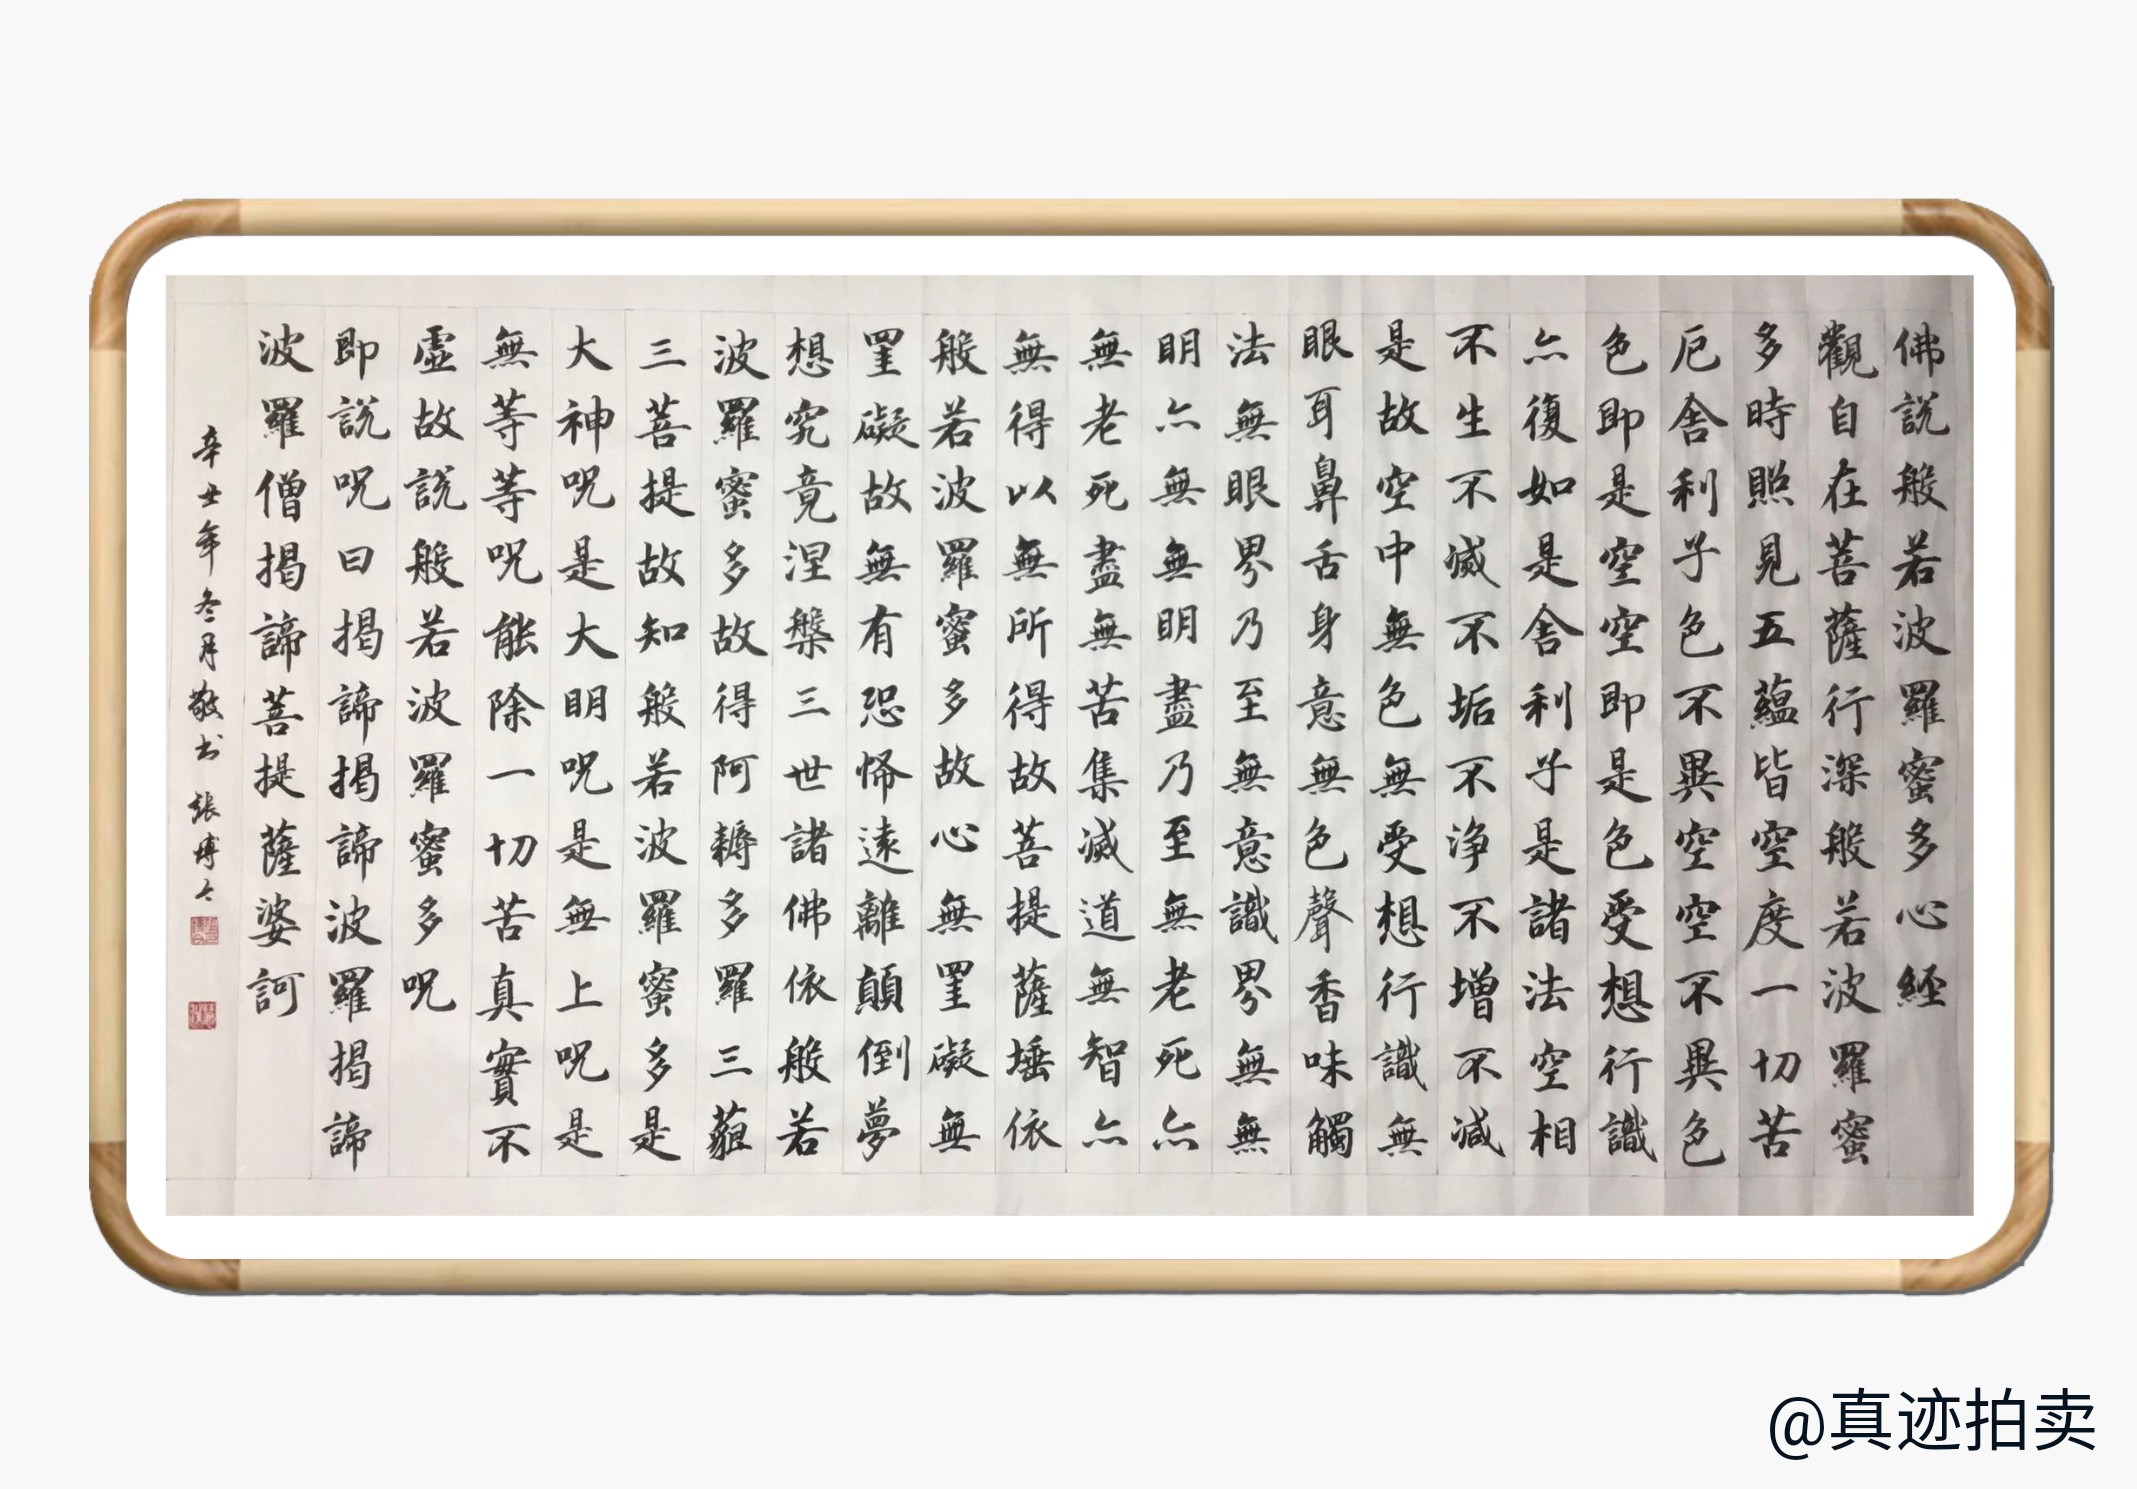 佛說般若波羅蜜多心經
觀自在菩薩行深般若波羅蜜
多時照見五蘊皆空度一切苦
厄舍利子色不異空空不異色
色即是空空即是色受想行識
亦復如是舍利子是諸法空相
不生不滅不垢不淨不增不減
是故空中無色無受想行識無
眼耳鼻舌身意無色聲香味觸
法無眼界乃至無意識界無無
明亦無無明盡乃至無老死亦
無老死盡無苦集滅道無智亦
無得以無所得故菩提薩埵依
般若波羅蜜多故心無罣礙無
罣礙故無有恐怖遠離顛倒夢
想究竟涅槃三世諸佛依般若
波羅蜜多故得阿耨多羅三藐
三菩提故知般若波羅蜜多是
大神呪是大明呪是無上呪是
無等等呪能除一切苦真實不
虛故說般若波羅蜜多呪
即說呪曰揭諦揭諦波羅揭諦
波羅僧揭諦菩提薩婆訶
辛丑年冬月敬书 張博
@真迹拍卖